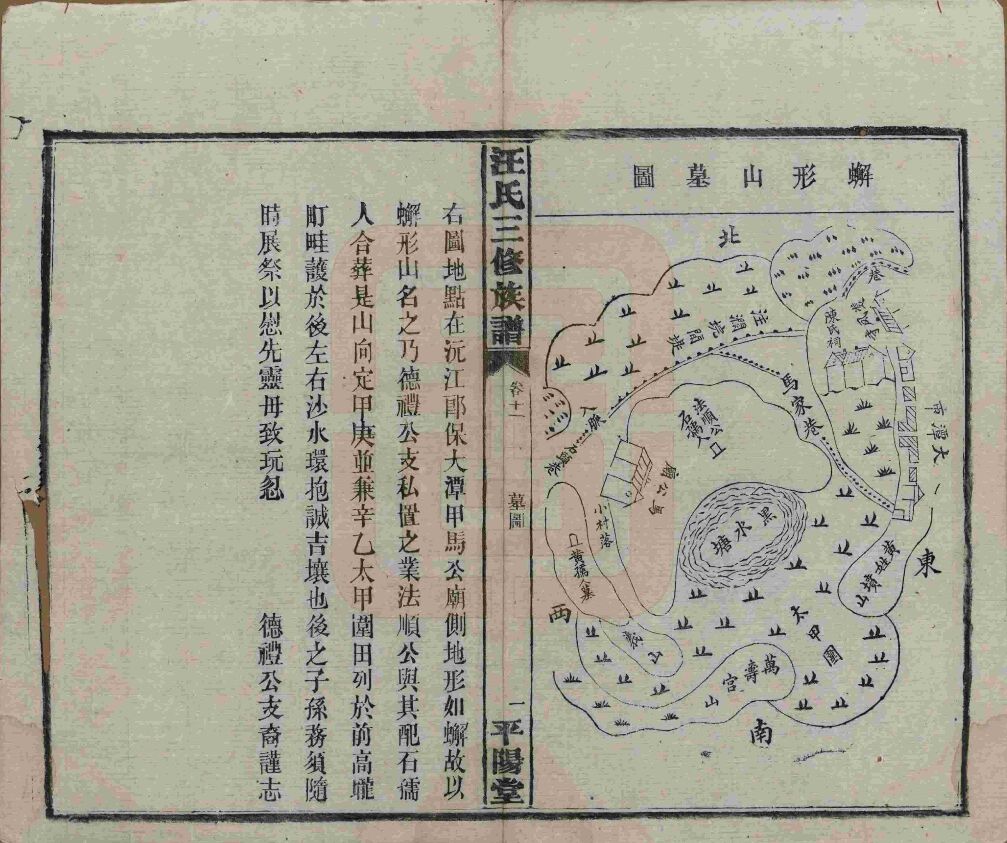 蠏形山墓圖
北
東
南
西
巷
陳氏祠
馬家巷
大潭市
法順公
石孺人
馬公廟
小村落
黑水塘
黃姓墳山
太甲圍
萬壽宮
山
義山
黃孺人墓
汪氏三修族譜
卷十一
墓圖
一
平陽堂
右圖地點在沅江郎保大潭甲馬公廟側地形如蠏故以
蠏形山名之乃德禮公支私置之業法順公與其配石孺
人合葬是山向定甲庚並兼辛乙太甲圍田列於前高壠
町畦護於後左右沙水環抱誠吉壤也後之子孫務須隨
時展祭以慰先靈毋致玩忽
德禮公支裔謹志